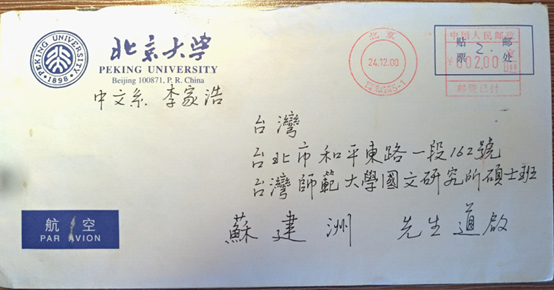 PEKING UNIVERSITY
1898
北京大学
PEKING UNIVERSITY
Beijing 100871, P. R. China
中文系 李家浩
北京
24.12.00
中国人民邮政
002.00
邮资已付
贴 邮
票 处
台灣
台北市和平東路一段162號
台灣師範大學國文研究所碩士班
蘇建洲 先生道啟
航空
PAR AVION